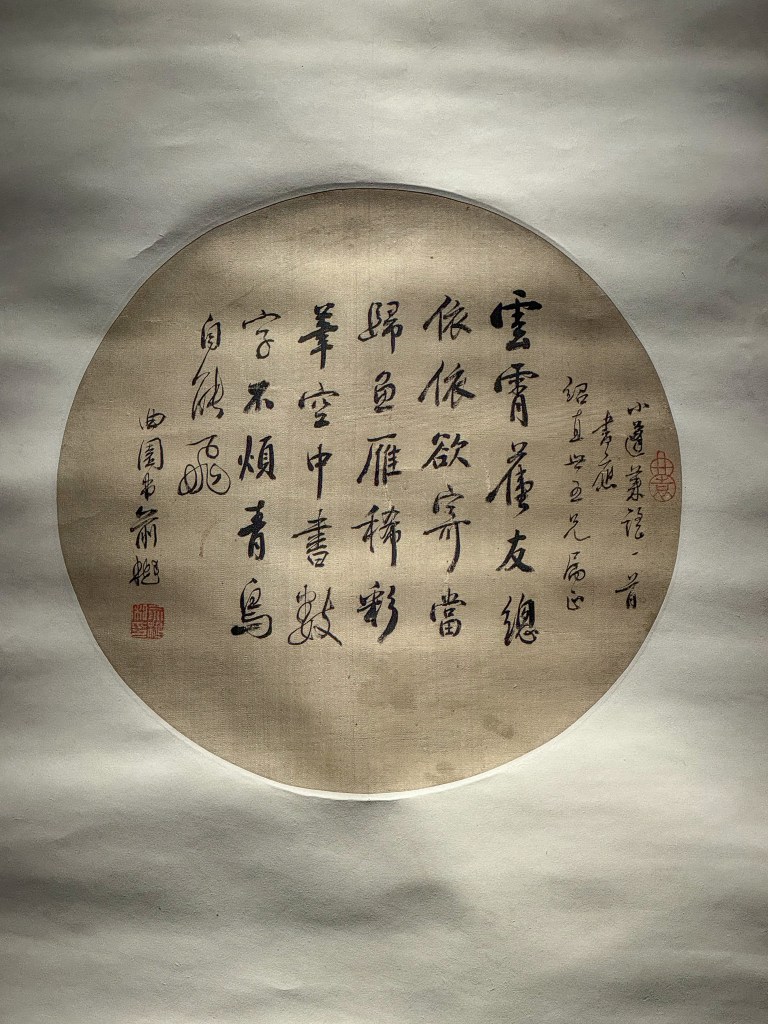 小蓬萊謠一首
書應
紹直世五兄屬正
雲霄舊友總
依依欲寄當
歸魚雁稀彩
筆空中書數
字不煩青鳥
自能飛
曲園弟俞樾